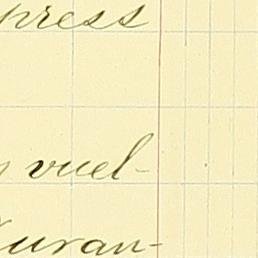 press
y vuel-
Duran-